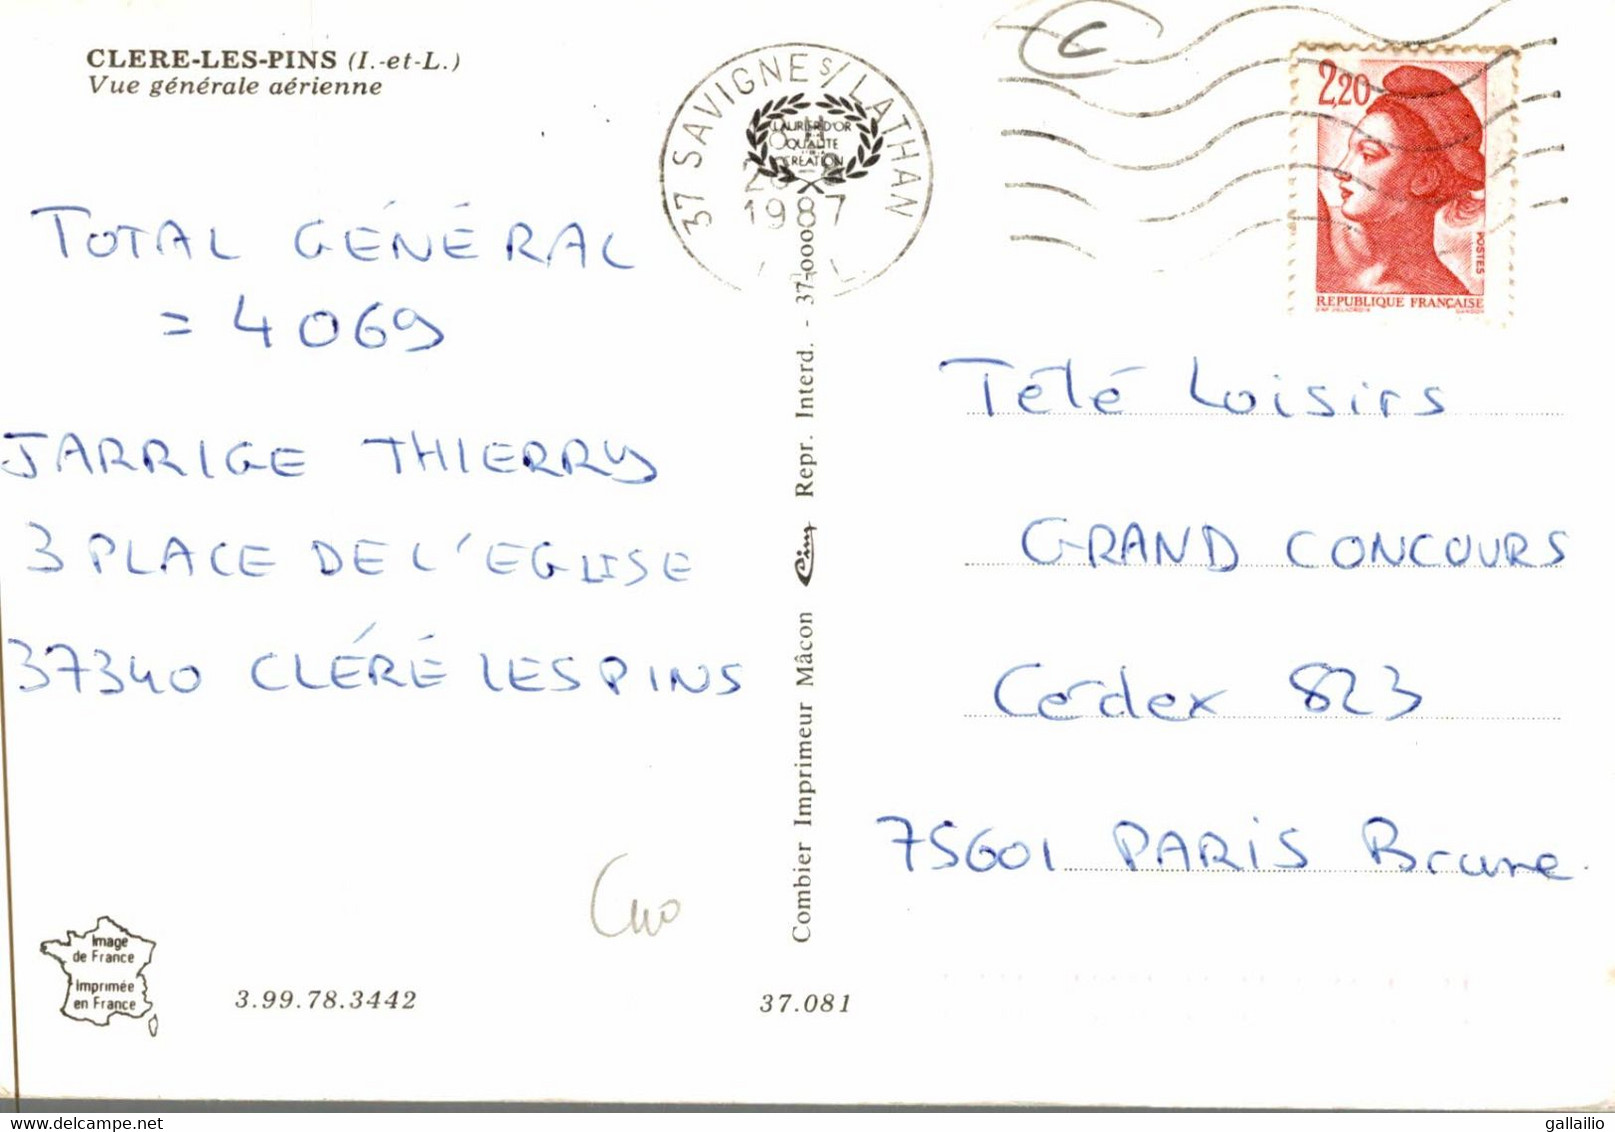 CLERE-LES-PINS (I.-et-L.)
Vue générale aérienne
TOTAL GÉNÉRAL
= 4069
JARRIGE THIERRY
3 PLACE DE L'EGLISE
37340 CLÉRÉ LES PINS
Image
de France
Imprimée
en France
3.99.78.3442
37.081
Combier Imprimeur Mâcon Cim Repr. Interd. - 37-000
37 SAVIGNE S/ LATHAN
LAURIER D'OR
QUALITE
CREATION
1987
C
2,20
POSTES
REPUBLIQUE FRANÇAISE
Télé Loisirs
GRAND CONCOURS
Cédex 823
75601 PARIS Brune
delcampe.net
gallailio